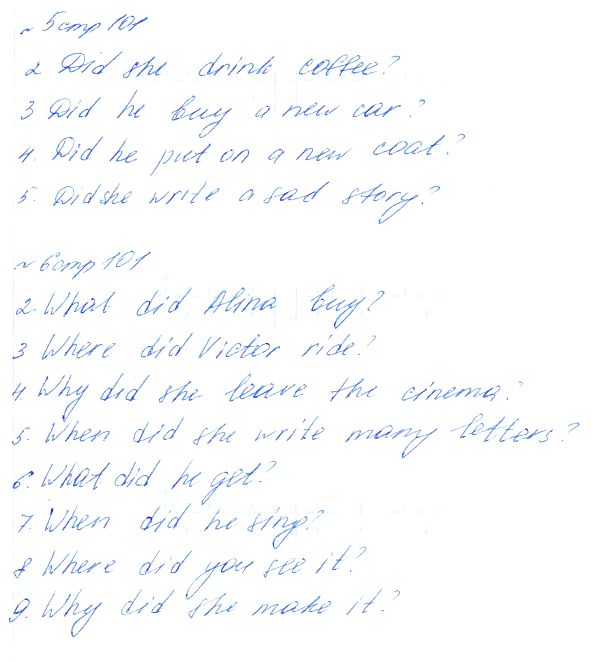 ~ 5 стр 101
2 Did she drink coffee?
3 Did he buy a new car?
4. Did he put on a new coat?
5. Did she write a sad story?
~ 6 стр 101
2. What did Alina buy?
3 Where did Victor ride?
4. Why did she leave the cinema?
5. When did she write many letters?
6. What did he get?
7. When did he sing?
8 Where did you see it?
9. Why did she make it?